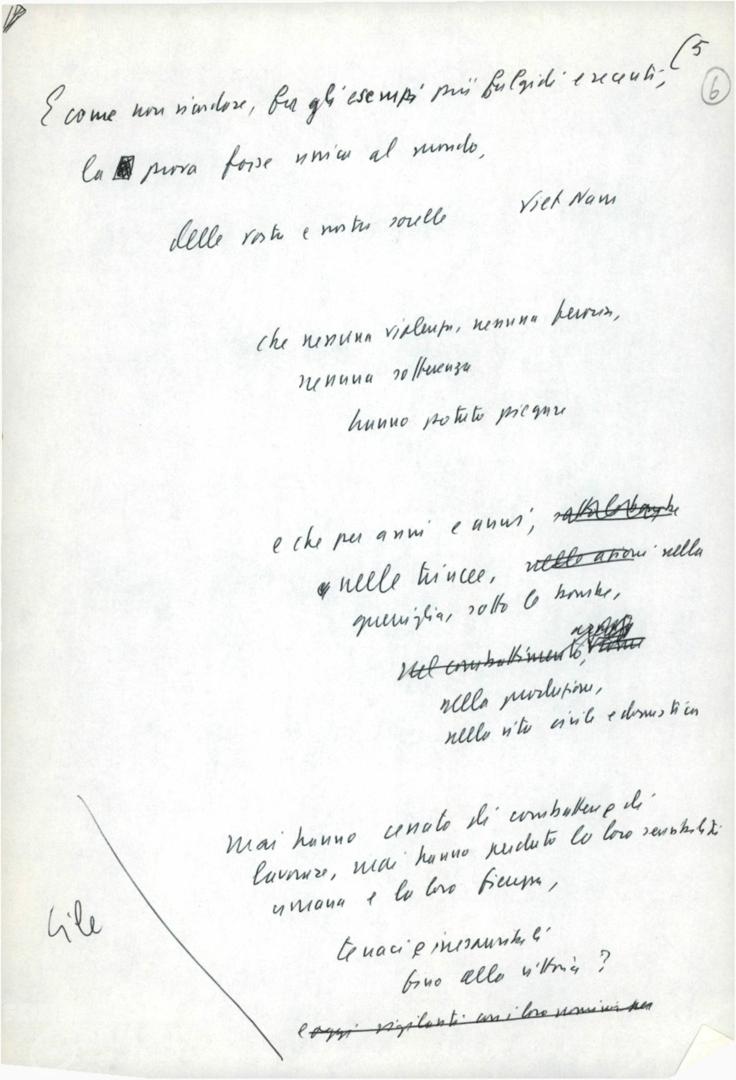 (5
6
E come non ricordare, fra gli esempi più fulgidi e recenti,
la prova forse unica al mondo,
delle vostre e nostre sorelle Viet Nam
che nessuna violenza, nessuna ferocia,
nessuna sofferenza
hanno potuto piegare
e che per anni e anni, sotto le bombe
nelle trincee, nelle azioni nella
guerriglia, sotto le bombe,
nel combattimento,
nella produzione,
nella vita civile e domestica
mai hanno cessato di combattere e di
lavorare, mai hanno perduto la loro sensibilità
umana e la loro fierezza,
Cile
tenaci e inesauribili
fino alla vittoria?
e oggi vigilanti con i loro uomini per